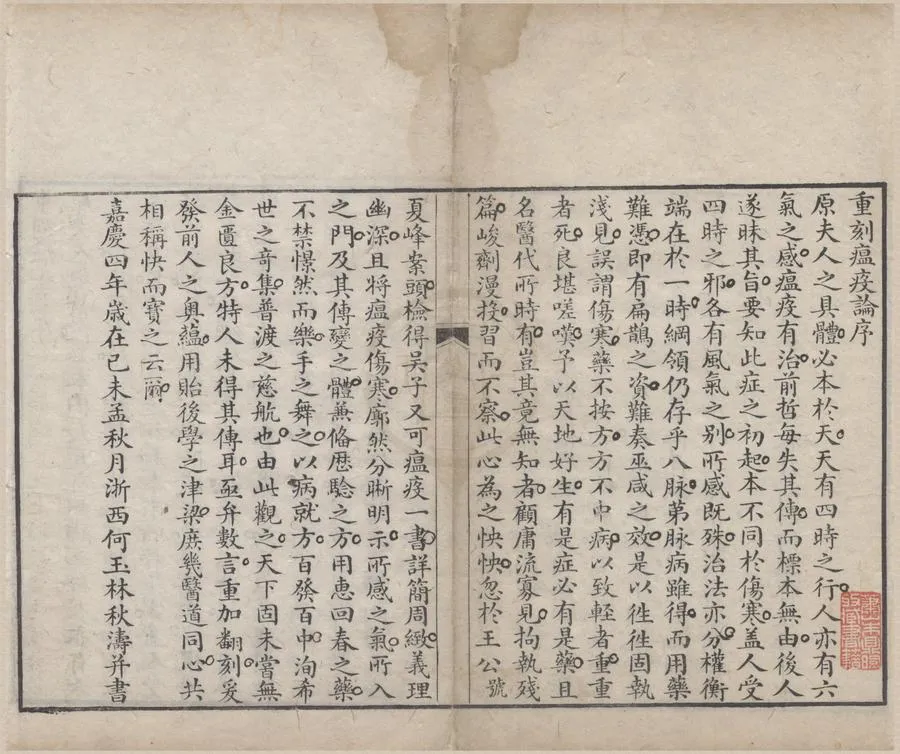 重刻瘟疫論序
原夫人之具體必本於天天有四時之行人亦有六
氣之感瘟疫有治前哲每失其傳而標本無由後人
遂昧其旨要知此症之初起本不同於傷寒盖人受
四時之邪各有風氣之别所感既殊治法亦分權衡
端在於一時綱領仍存乎八脉苐脉病雖得而用藥
難憑即有扁鵲之資難奏巫咸之效是以徃徃固執
淺見誤謂傷寒藥不按方方不中病以致輕者重重
者死良堪嗟嘆予以天地好生有是症必有是藥且
名醫代所時有豈其竟無知者顧庸流寡見拘執殘
篇峻劑漫投習而不察此心為之怏怏忽於王公號
夏峰案頭檢得吴子又可瘟疫一書詳簡周緻義理
幽深且將瘟疫傷寒廓然分晰明示所感之氣所入
之門及其傳變之體兼俻歷騐之方用惠回春之藥
不禁憬然而樂手之舞之以病就方百發百中洵希
世之竒集普渡之慈航也由此觀之天下固未嘗無
金匱良方特人未得其傳耳亟弁數言重加翻刻爰
發前人之奥藴用貽後學之津梁庶幾醫道同心共
相稱快而寳之云爾
嘉慶四年歲在己未孟秋月浙西何玉林秋濤并書